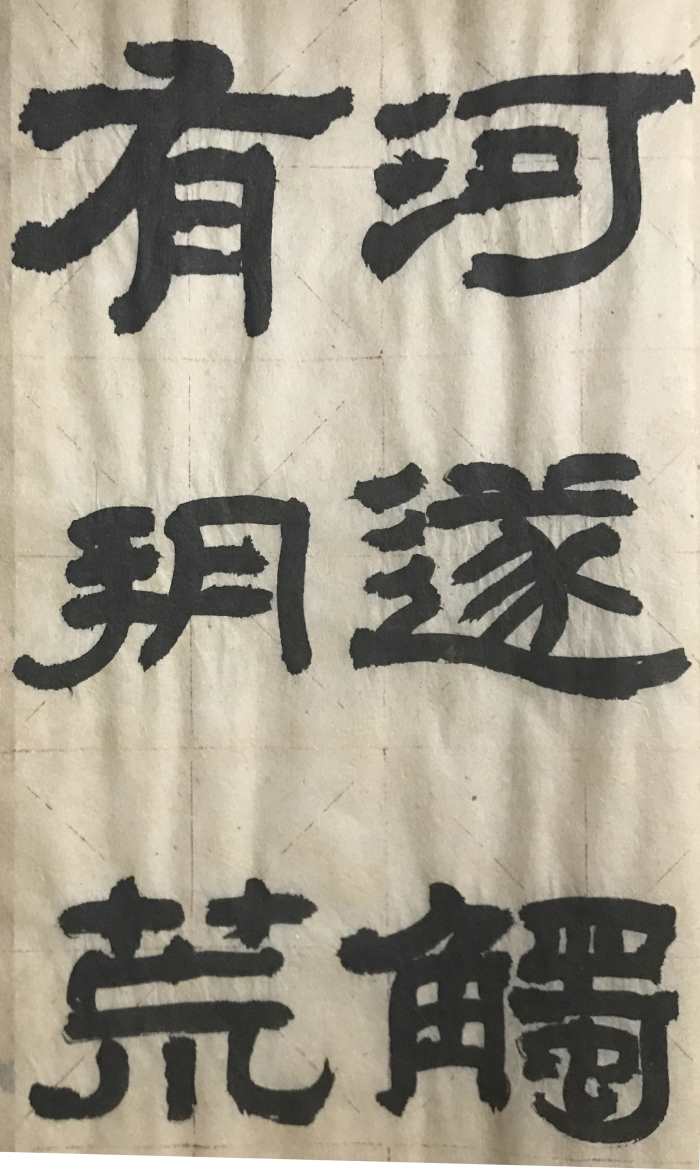 河遂觸
有朔荒